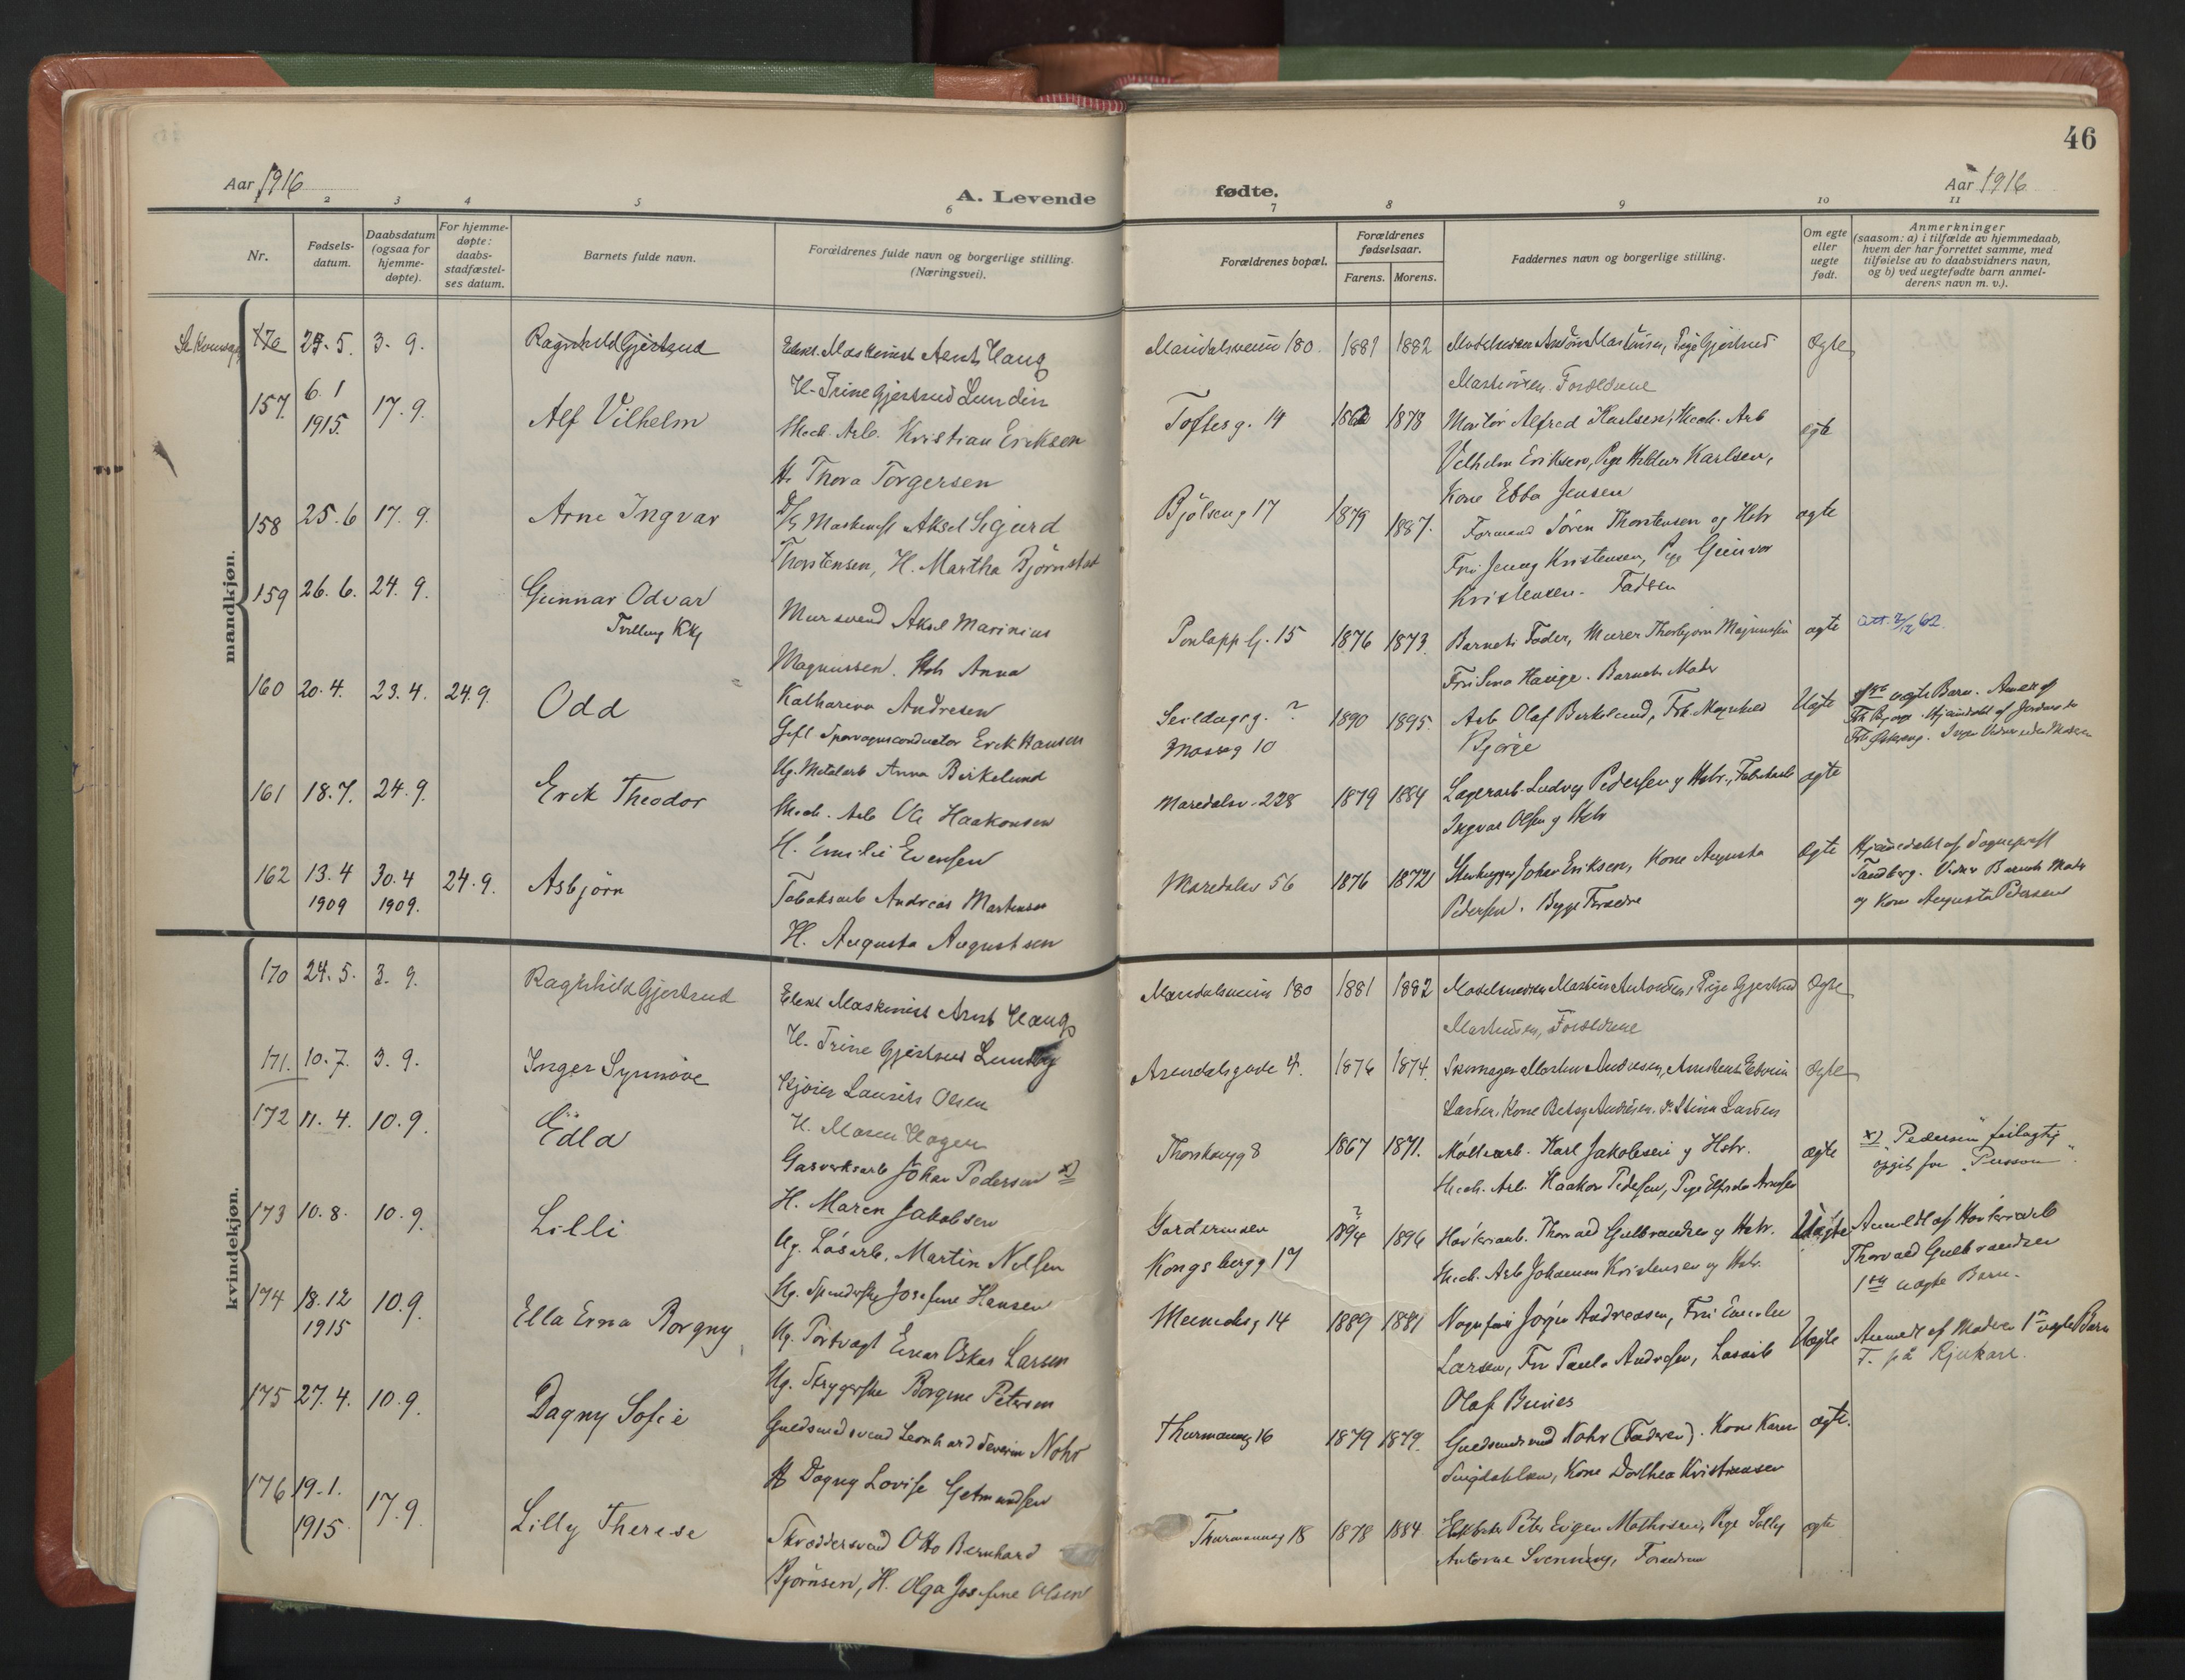 46
Aar 1916
A. Levende
fødte.
Aar 1916
1 2 3 4 5 6 7 8 9 10 11
Nr.
Fødsels-
datum.
Daabsdatum
(ogsaa for
hjemme-
døpte).
For hjemme-
døpte:
daabs-
stadfæstel-
ses datum.
Barnets fulde navn.
Forældrenes fulde navn og borgerlige stilling.
(Næringsvei).
Forældrenes bopæl.
Forældrenes
fødselsaar.
Farens. Morens.
Faddernes navn og borgerlige stilling.
Om egte
eller
uegte
født.
Anmerkninger
(saasom: a) i tilfælde av hjemmedaab,
hvem der har forrettet samme, med
tilføielse av to daabsvidners navn,
og b) ved uegtefødte barn anmel-
derens navn m. v.).
mandkjøn.
3. 9. Ragnhild Gjertrud
Elekt. Maskinist Arnt Haug
H. Trine Gjertrud Lundin
Maridalsveien 180. 1881 1882
Pige Gjertrud
Martinsen. Forældrene
Ægte
157. 6. 1 1915. 17. 9. Alf Vilhelm
Mech. Arb. Kristian Eriksen
H. Thora Torgersen
Toftesg. 14 1878
Montør Alfred Karlsen, Mech. Arb
Vilhelm Eriksen, Pige Karlsen,
Kone Ebba Jensen
ægte
158 25. 6 17. 9. Arne Ingvar
Maskinist Aksel Sigurd
Thorstensen, H. Martha Bjørnstad
Bjølseng 17 1879 1887.
Formand Søren Thorstensen og Hstr
Frk. Jenny Kristensen, Pige Gunvor
Kristensen. Faderen
ægte
159 26. 6. 24. 9. Gunnar Odvar
Tvilling
Mursvend Aksel Marinius
Magnussen. Hstr Anna
Katharina Andresen
15 1876 1873.
Barnets Fader, Murer Thorbjørn Magnussen
Barnets Moder
ægte
160 20. 4. 23. 4. 24. 9. Odd
Gift Sporvognsconductor Erik Hansen
Ug. Metalarb Anna Birkelund
Seildugsg. ?
Mosseg 10
1890 1895.
Arb Olaf Birkelund, Frk. Magnhild
Bjørge
Uægte
161 18. 7. 24. 9. Erik Theodor
Mech. Arb Ole Haakonsen
H. Emilie Evensen
Maridalsv. 228 1879 1884
Lagerarb. Ludvig Pedersen og Hstr., Fabrikarb
Ingvar Olsen og Hstr
ægte
162 13. 4 1909 30. 4 1909. 24. 9. Asbjørn
Tobaksarb Andreas Martinsen
H. Augusta Augustsen
Maridalsv 56 1876 1872
Stenhugger Johan Eriksen, Kone Augusta
Pedersen. Begge Forældre
ægte
Hjemmedøbt af Sogneprest
Tandberg. Vidner Barnets Moder
og Kone Augusta Pedersen
kvindekjøn.
170 24. 5. 3. 9. Ragnhild Gjertrud
Elekt Maskinist Arnt Haug
H. Trine Gjertrud
Maridalsveien 180 1881 1882
Pige Gjertrud
Martinsen, Forældrene
Ægte
171. 10. 7. 3. 9. Inger Synnøve
Kjører Laurits Olsen
H. Maren Hagen
Arendalsgade 4. 1876 1874.
Skomager Martin Andresen,
Larsen, Kone Betsy Andresen. Stina Larsen
Ægte
172 11. 4. 10. 9. Edla
Gasverksarb Johan Pedersen x)
H. Maren Jakobsen
Thorshaugg 8 1867 1871.
Karl Jakobsen og Hstr.
Mech. Arb. Haakon Pedersen, Pige
ægte
x) "Pedersen" feilagtig
opgit for "Persson".
173 10. 8. 10. 9. Lilli
Ug. Løsarb. Martin Nilsen
Ug. Josefine Hansen
Gardermoen
Kongsbergg 17
? 1894 1896
Thorvald Gulbrandsen og Hstr.
Mech. Arb Johannes Kristensen og Hstr.
Uægte
Anmeldt af
Thorvald Gulbrandsen
1ste uægte Barn.
174 18. 12 1915 10. 9. Ella Erna Borgny
Ug. Portvagt Einar Oskar Larsen
Ug. Strygerske Borgine Petersen
14 1889 1891
Jørgen Andreassen,
Larsen, Fru Paula Andresen, Løsarb
Olaf
Uægte
Anmeldt af Moderen 1ste uægte Barn
F. på Rjukan.
175 27. 4. 10. 9. Dagny Sofie
Guldsmedsvend Leonhard Severin Nohr
H Dagny Lovise
Thurmannsg 16 1879 1879.
Guldsmedsvend Nohr (Faderen). Kone Karen
Kone Dorthea Kristiansen
ægte.
176 19. 1. 1915 17. 9. Lilly Therese
Skræddersvend Otto Bernhard
Bjørnsen, H. Olga Josefine Olsen
Thurmannsg 18 1878 1884
Peter Eugen Mathisen, Pige Solly
Antonie Svenning, Forældrene
ægte